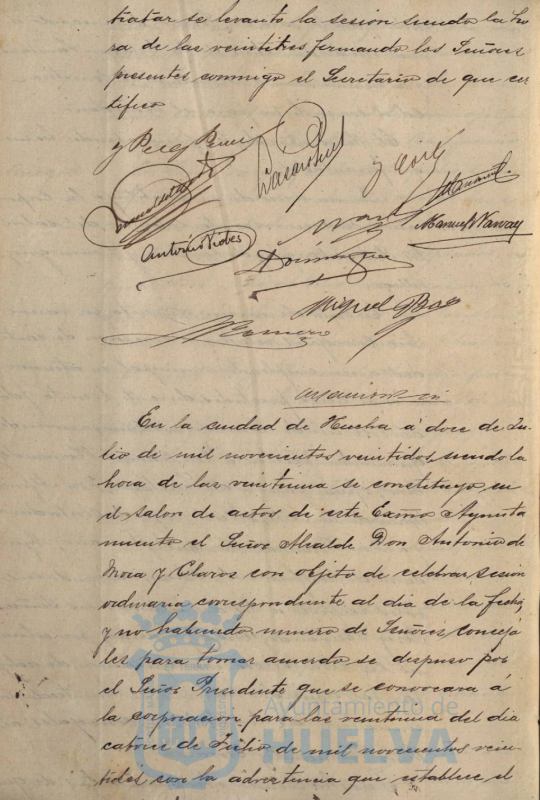 tratar se levantó la sesión siendo la ho
ra de las veintitres firmando los Señores
presentes conmigo el Secretario de que cer
tifico
Antonio Vides
Manuel Narvaez
Dominguez
Miguel Bao
Romero
En la ciudad de Huelva á doce de Ju-
lio de mil novecientos veintidos, siendo la
hora de las veintiuna se constituyó en
el salon de actos de este Excmo Ayunta
miento el Señor Alcalde Don Antonio de
Mora y Claros con objeto de celebrar sesion
ordinaria correspondiente al dia de la fecha,
y no habiendo numero de Señores Conceja
les para tomar acuerdo se dispuso por
el Señor Presidente que se convocara á
la corporacion para las veintiuna del dia
catorce de Julio de mil novecientos vein-
tidos con la advertencia que establece el
Ayuntamiento de
HUELVA